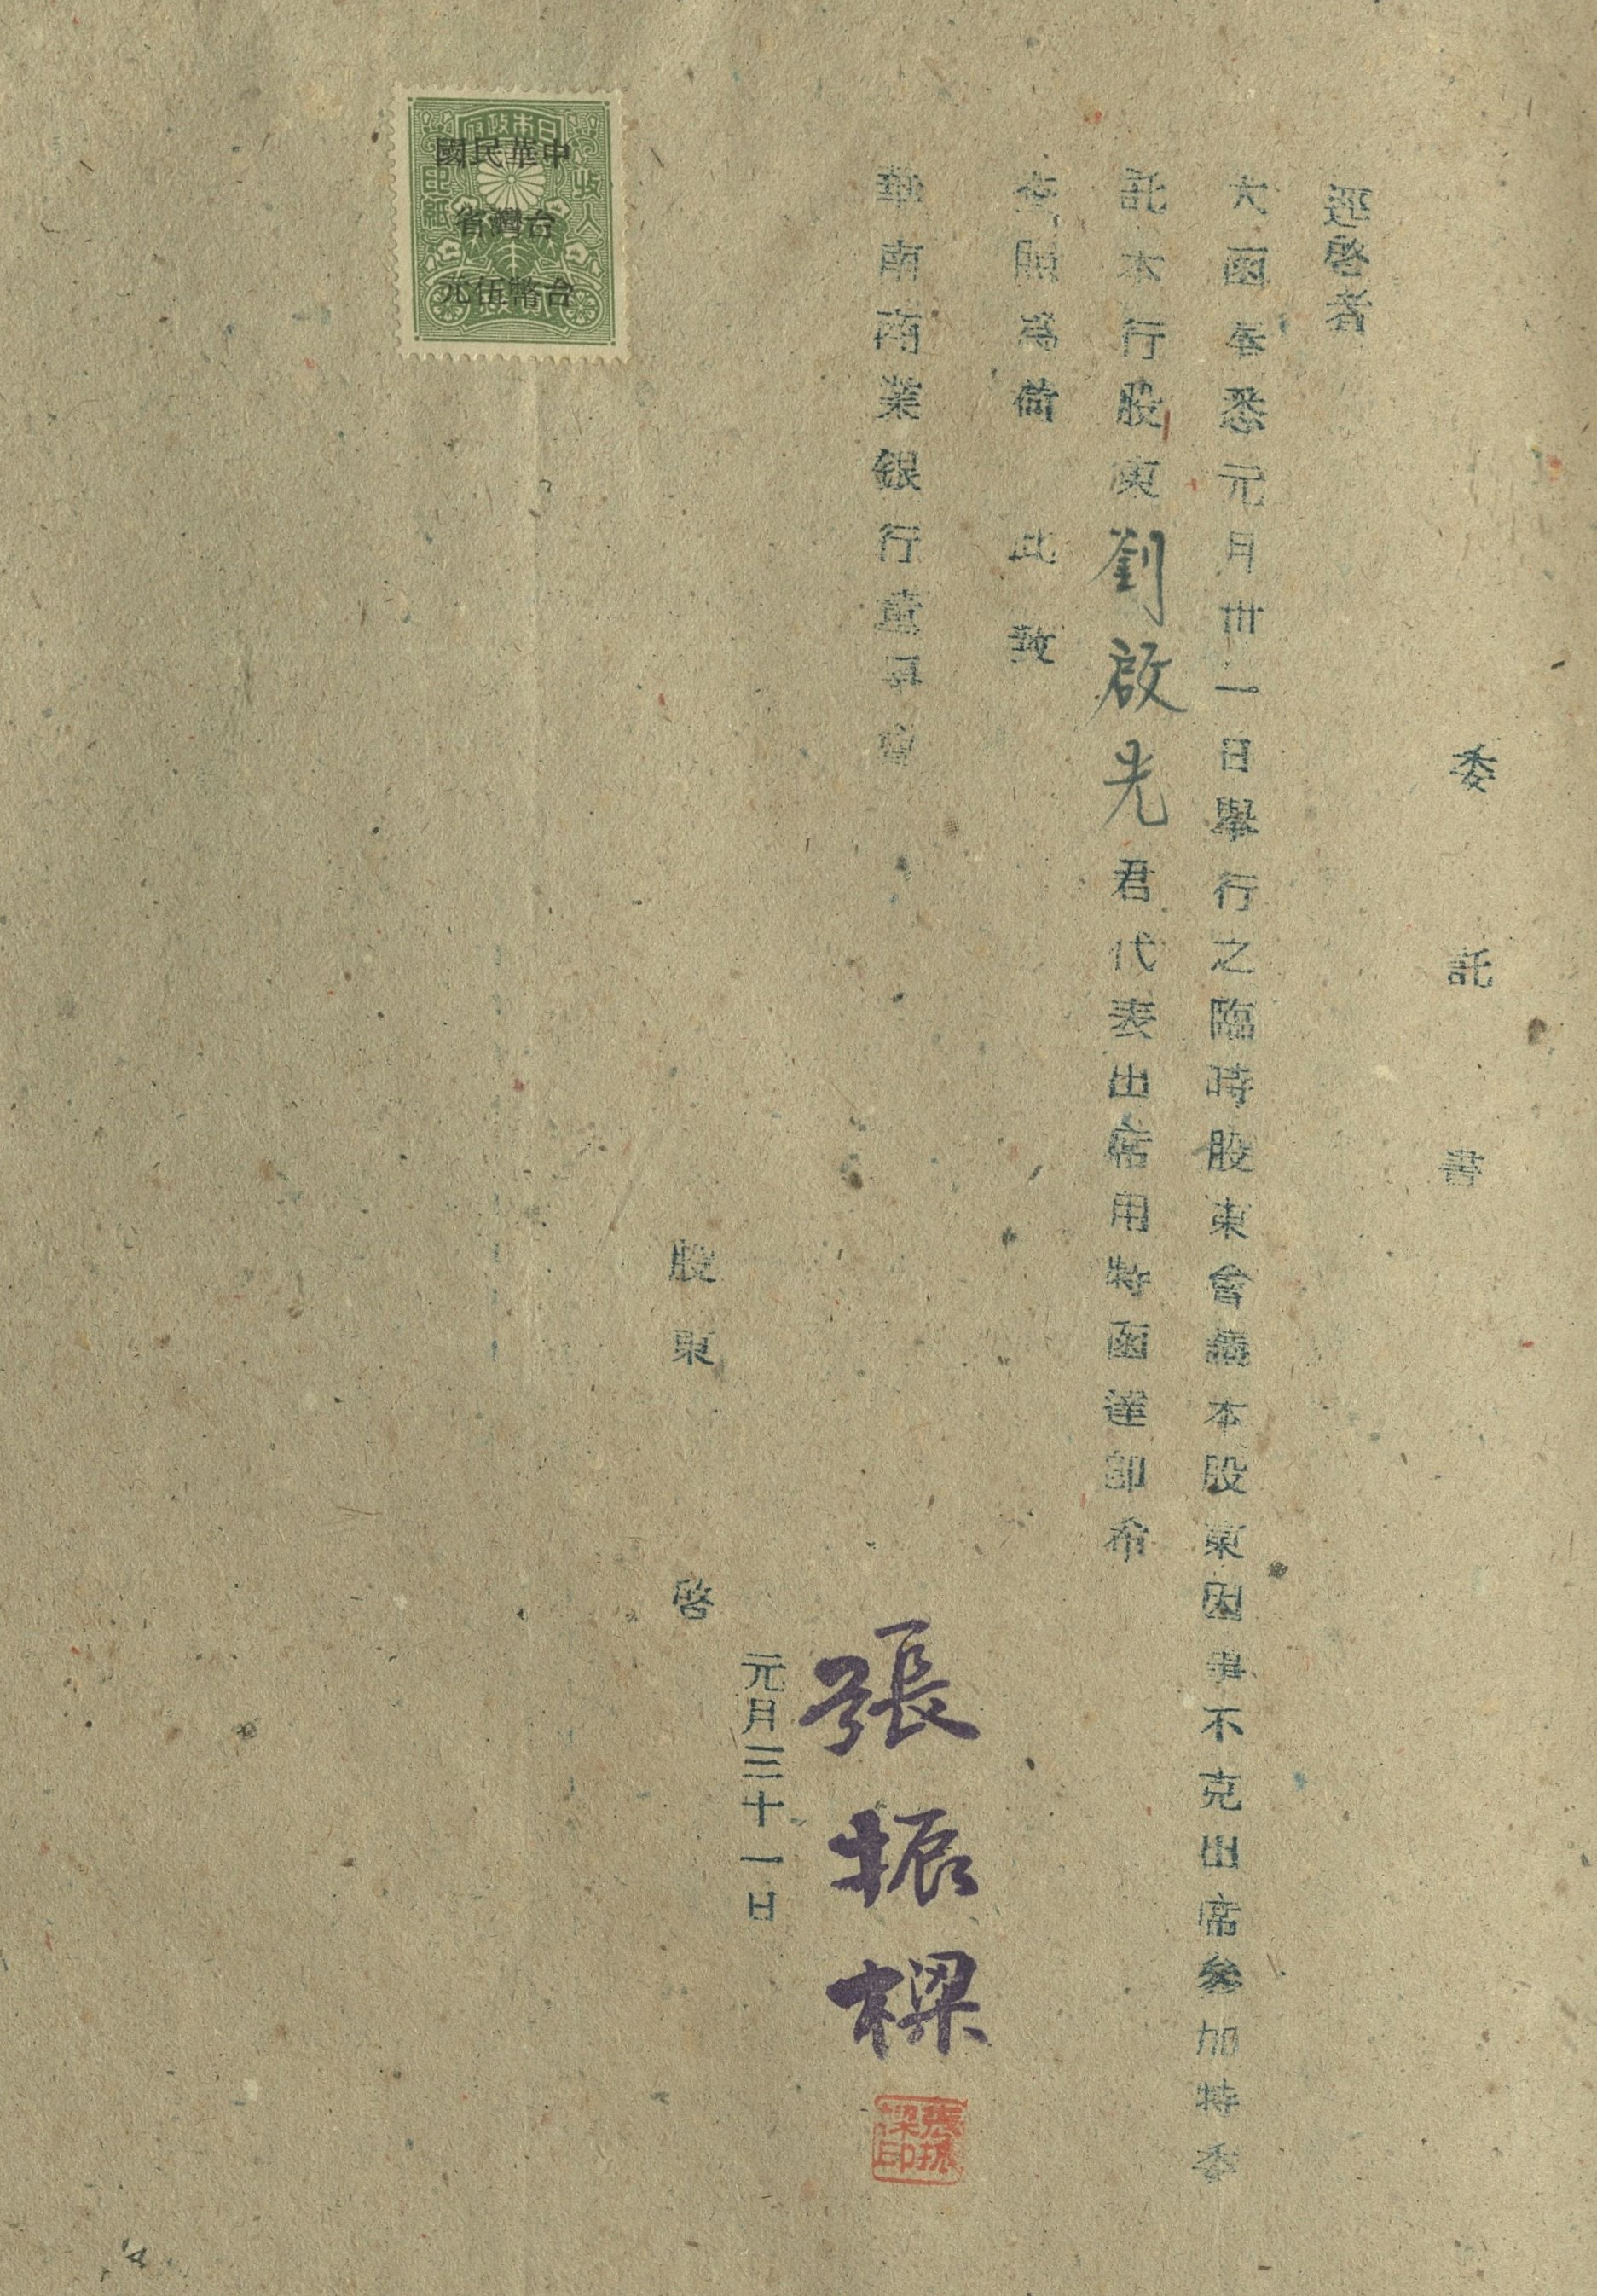 委託書
逕啓者
大函奉悉元月卅一日舉行之臨時股東會議本股東因事不克出席參加特委
託本行股東劉啟光君代表出席用特函達卽希
查照爲荷 此致
華南商業銀行董事會
張振樑
張振樑印
元月三十一日
股東 啓
日本政府
收入印紙
中華民國
台灣省
台幣伍元